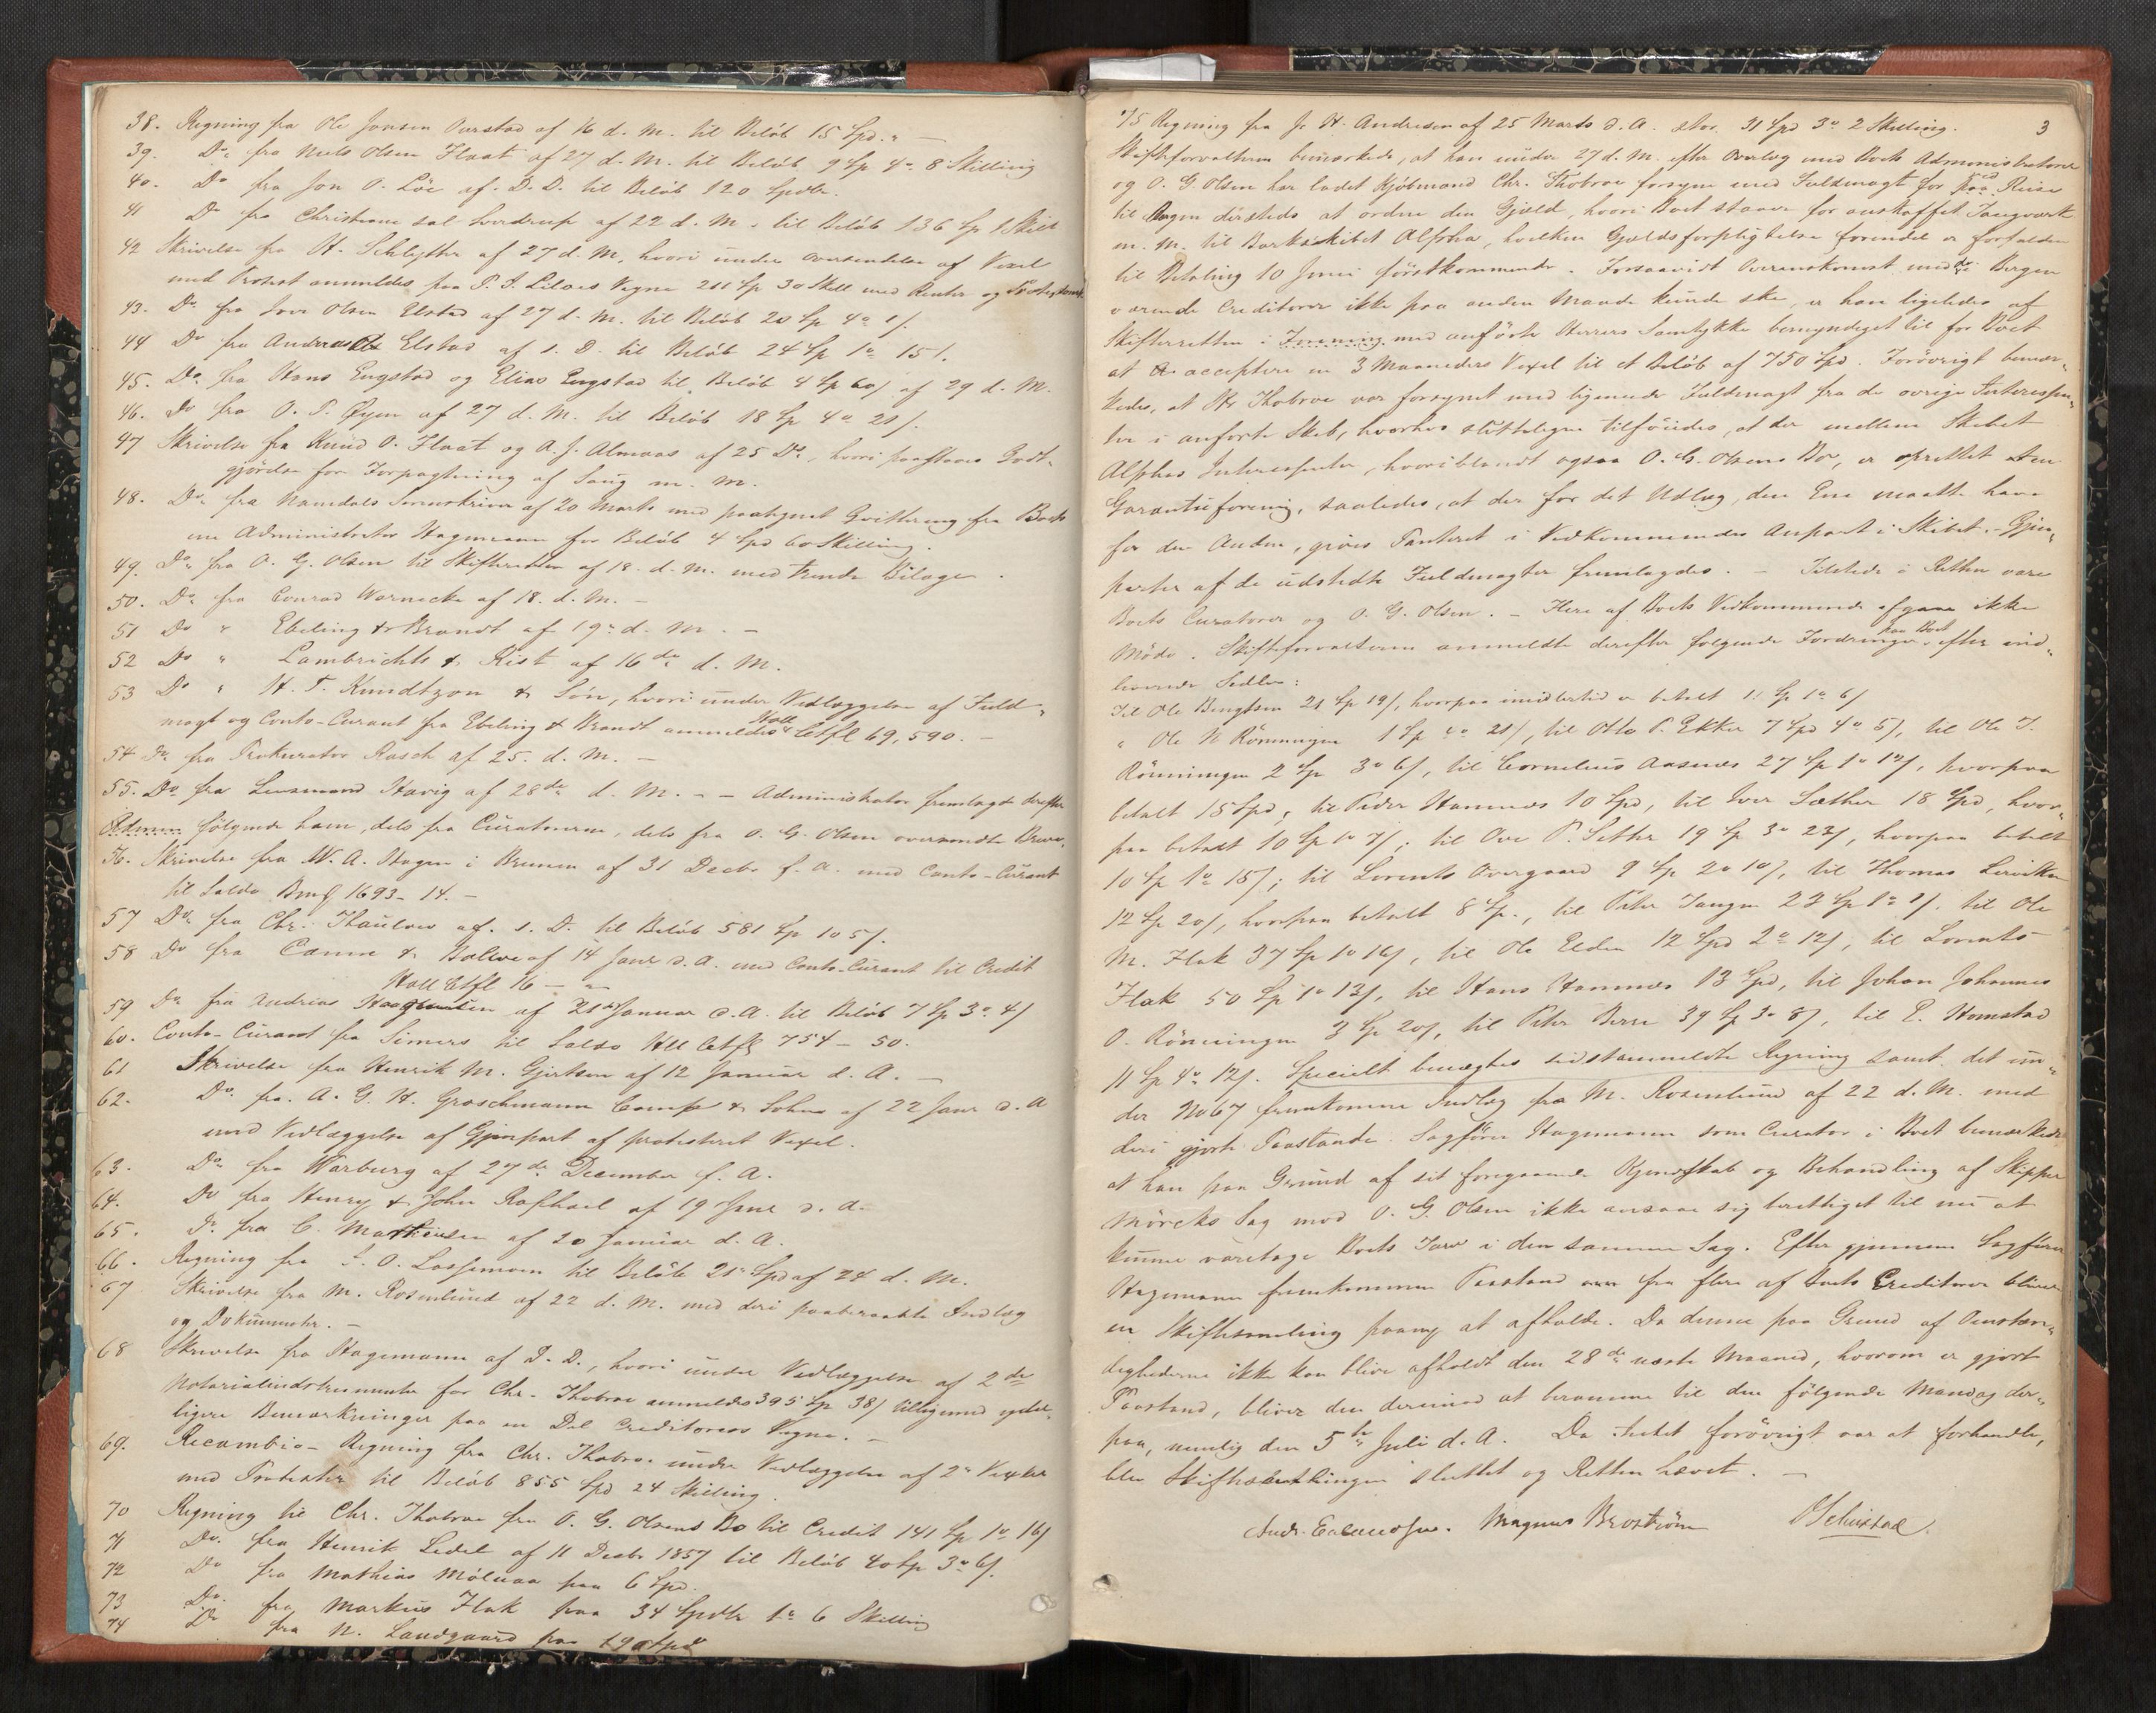 38. Regning fra Ole Jonsen Overstad af 16 d. M. til Beløb 15 Spd. " —
39. Do fra Niels Olsen Flaat af 27 d. M. til Beløb 9 Sp 4 " 8 Skilling
40. Do fra Jon O. Löe af D. D. til Beløb 120 Spdlr.
41 Do fra Christiane sal Sverdrup af 22 d. M. til Beløb 136 Sp 1 Skill
42 Skrivelse fra H. Schlytter af 27 d. M. hvori under Oversendelse af Vexel
med Protest anmeldes paa P. I. Lilaes Vegne 211 Sp 30 Skill med Renter og
43. Do fra Iver Olsen Elstad af 27 d. M. til Beløb 20 Sp 4 " 1 /.
44 Do fra Andreas Elstad af s. D. til Beløb 24 Sp 1 " 15 /.
45. Do fra Hans Engstad og Elias Engstad til Beløb 4 Sp 60 / af 29 d. M.
46. Do fra O. P. Øyen af 27 d. M. til Beløb 18 Sp 4 " 21 /.
47 Skrivelse fra Knud O. Flaat og A. J. Almaas af 25 Do, hvori paastaaes Godt-
gjørelse for Forpagtning af Saug m. m.
48. Do fra Namdals Sorenskriver af 20 Marts med paategnet Qvittering fra Boets
ene Administrator Hagemann for Beløb 4 Spd 60 Skilling.
49. Do fra O. G. Olsen til Skifteretten af 18. d. M. med trende Bilage.
50. Do fra Conrad Warnecke af 18. d. M. —
51 Do " Ebeling & Brandt af 19 d. M. —
52 Do " Lambrichts & Kist af 16de d. M.
53 Do " H. T. Kundtzon & Søn, hvori under Vedlæggelse af Fuld-
magt og Conto-Curant fra Ebeling & Brandt anmeldes Holl Ctfl 69, 590. —
54 Do fra Prokurator Rasch af 25. d. M. —
55. Do fra Lensmand Havig af 28de d. M. — — Administrator fremlagde derefter
følgende ham, dels fra Curatorerne, dels fra O. G. Olsen oversendte Breve.
56. Skrivelse fra W. A. Hagen i Bremen af 31 Decbr f. A. med Conto-Curant
til Saldo Bmk 1693 - 14. —
57 Do fra Chr. Thaulow af s. D. til Beløb 581 Sp 1 " 5 /.
58 Do fra Canne & Balwe af 14 Janr d. A. med Conto-Curant til Credit
Holl Ctfl 16 — "
59 Do fra Andreas Haagensen af 21de Januar d. A. til Beløb 7 Sp 3 " 4 /
60. Conto-Curant fra Simers til Saldo Holl Ctfl 754 - 50.
61 Skrivelse fra Henrik M. Gjertsen af 12 Januar d. A. —
62. Do. fra A. G. H. Groschmann Comp & Sohne af 22 Janr d. A
med Vedlæggelse af Gjenpart af protesteret Vexel.
63. Do fra Warburg af 27de December f. A.
64. Do fra Henry & John Raphael af 19 Janr d. A.
65. Do fra C. Mathiesen af 20 Januar d. A.
66. Regning fra O. Lossemoen til Beløb 21 Spd af 24 d. M.
67 Skrivelse fra M. Rosenlund af 22 d. M. med deri paaberaabte Indlæg
og Dokumenter. —
68 Skrivelse fra Hagemann af D. D., hvori under Vedlæggelse af 2de
Notarialindstrumenter for Chr. Thobroe anmeldes 395 Sp 38 / tilligemed yder-
ligere Bemærkninger paa en Del Creditorers Vegne. —
69. Recambio-Regning fra Chr. Thobroe under Vedlæggelse af 2 Vexler
med Protester til Beløb 855 Spd 24 Skilling.
70 Regning til Chr. Thobroe fra O. G. Olsens Bo til Credit 141 Sp 1 " 16 /
71 Do. fra Henrik Sedel af 11 Decbr 1857 til Beløb 40 Sp 3 " 6 /.
72 Do fra Mathias Møluaa paa 6 Spd.
73 Do. fra Markus Flak paa 34 Spdlr 1 " 6 Skilling
74 Do fra N. Landgaard paa 19 Spd
3
75 Regning fra J. H. Andresen af 25 Marts d. A. stor 31 Spd 3 " 2 Skilling.
Skifteforvalteren bemærkede, at han under 27 d. M. efter Overlæg med Boets Administratorer
og O. G. Olsen har ladet Kjøbmand Chr. Thobroe forsyne med Fuldmagt for paa Reise
til Bergen dersteds at ordne den Gjæld, hvori Boet staaer for anskaffet Taugværk
m. M. til Barkskibet Alpha, hvilken Gjældsforpligtelse forendel er forfalden
til Betaling 10 Juni førstkommende. Forsaavidt Overenskomst med de i Bergen
værende Creditorer ikke paa anden Maade kunde ske, er han ligeledes af
Skifteretten i Forening med anførte Herrers Samtykke bemyndiget til for Boet
at acceptere en 3 Maaneders Vexel til et Beløb af 750 Spd. Forøvrigt bemær-
kedes, at Hr Thobroe var forsynet med lignende Fuldmagt fra de øvrige Interessen-
ter i anførte Skib, hvorhos sluttelegen tilføiedes, at der mellem Skibet
Alphas Interessenter, hvoriblandt ogsaa O. G. Olsens Bo, er oprettet en
Garantieforening, saaledes, at der for det Udlæg, den Ene maatte have
for den Anden, gives Panteret i Vedkommendes Anpart i Skibet. — Gjen-
parter af de udstedte Fuldmagter fremlagdes. — Tilstede i Retten vare
Boets Curatorer og O. G. Olsen. — Flere af Boets Vedkommende afgave ikke
Møde. Skifteforvalteren anmeldte derefter følgende Fordringer paa Boet efter ind-
havende Sedler:
Til Ole Bengtsen 21 Sp 19 /, hvorpaa imidlertid er betalt 11 Sp 1 " 6 /
" Ole N Rönningen 1 Sp 4 " 21 /, til Otto P. Ekker 7 Spd 4 " 5 /, til Ole I.
Rönningen 2 Sp 3 " 6 /, til Cornelius Aasnes 27 Sp 1 " 17 /, hvorpaa
betalt 15 Spd, til Peder Hamnes 10 Spd, til Iver Sæther 18 Spd, hvor-
paa betalt 10 Sp 1 " 7 /; til Ove P. Sether 19 Sp 3 " 23 /, hvorpaa betalt
10 Sp 1 " 15 /; til Lorents Overgaard 9 Sp 2 " 10 /, til Thomas Lervik
12 Sp 20 /, hvorpaa betalt 8 Sp., til Peter Tangen 23 Sp 1 " 1 /. til Ole
M. Flak 37 Sp 1 " 16 /, til Ole Elden 12 Spd 2 " 12 /, til Lorents
Flak 50 Sp 1 " 13 /, til Hans Hamnes 13 Spd, til Johan Johannes
O. Rönningen 3 Sp 20 /, til Peter Berre 39 Sp 3 " 8 /, til P. Homstad
11 Sp 4 " 12 /. Specielt benegtes sidstanmeldte Regning samt det un-
der No 67 fremkomne Indlæg fra M. Rosenlund af 22 d. M. med
deri gjorte Paastande. Sagfører Hagemann som Curator i Boet bemærkede
at han paa Grund af sit foregaaende Kjendskab og Behandling af Skipper
Mörcks Sag mod O. G. Olsen ikke ansaae sig berettiget til nu at
kunne varetage Boets Tarv i den samme Sag. Efter gjennem Sagfører
Hagemann fremkommen Paastand fra flere af Boets Creditorer bliver
en Skiftesamling paany at afholde. Da denne paa Grund af Omstæn-
dighederne ikke kan blive afholdt den 28de næste Maaned, hvorom er gjort
Paastand, bliver den derimod at beramme til den følgende Mandag der-
paa, nemlig den 5te Juli d. A. Da Intet forøvrigt var at forhandle,
blev Skiftesamlingen sluttet og Retten hævet. —
Magnus Broström